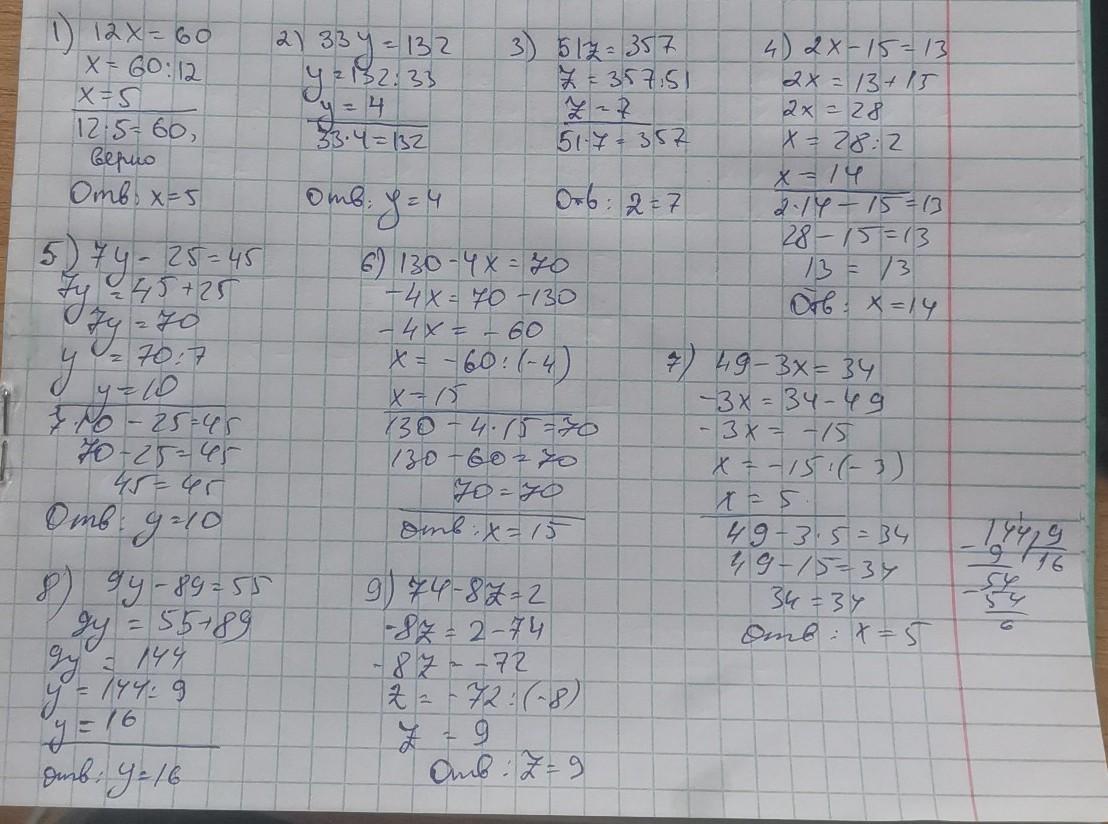 1) 12x = 60
x = 60:12
x = 5
12·5 = 60,
верно
Отв: x = 5
2) 33y = 132
y = 132:33
y = 4
33·4 = 132
Отв: y = 4
3) 51z = 357
z = 357:51
z = 7
51·7 = 357
Отв: z = 7
4) 2x - 15 = 13
2x = 13 + 15
2x = 28
x = 28:2
x = 14
2·14 - 15 = 13
28 - 15 = 13
13 = 13
Отв: x = 14
5) 7y - 25 = 45
7y = 45 + 25
7y = 70
y = 70:7
y = 10
7·10 - 25 = 45
70 - 25 = 45
45 = 45
Отв: y = 10
6) 130 - 4x = 70
-4x = 70 - 130
-4x = -60
x = -60:(-4)
x = 15
130 - 4·15 = 70
130 - 60 = 70
70 = 70
Отв: x = 15
7) 49 - 3x = 34
-3x = 34 - 49
-3x = -15
x = -15:(-3)
x = 5
49 - 3·5 = 34
49 - 15 = 34
34 = 34
Отв: x = 5
144 9
- 9 16
- 54
54
0
8) 9y - 89 = 55
9y = 55 + 89
9y = 144
y = 144:9
y = 16
Отв: y = 16
9) 74 - 8z = 2
-8z = 2 - 74
-8z = -72
z = -72:(-8)
z = 9
Отв: z = 9